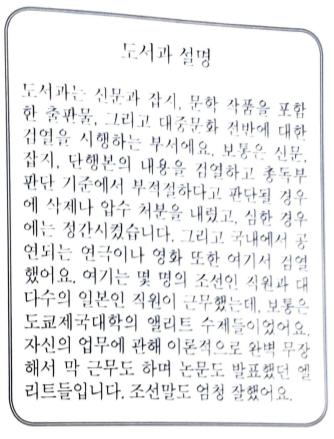 도서과 설명
도서과는 신문과 잡지, 문학 작품을 포함
한 출판물, 그리고 대중문화 전반에 대한
검열을 시행하는 부서에요. 보통은 신문,
잡지, 단행본의 내용을 검열하고 총독부
판단 기준에서 부적절하다고 판단될 경우
에 삭제나 압수 처분을 내렸고, 심한 경우
에는 정간시켰습니다. 그리고 국내에서 공
연되는 연극이나 영화 또한 여기서 검열
했어요. 여기는 몇 명의 조선인 직원과 대
다수의 일본인 직원이 근무했는데, 보통은
도쿄제국대학의 앨리트 수제들이었어요.
자신의 업무에 관해 이론적으로 완벽 무장
해서 막 근무도 하며 논문도 발표했던 엘
리트들입니다. 조선말도 엄청 잘했어요.